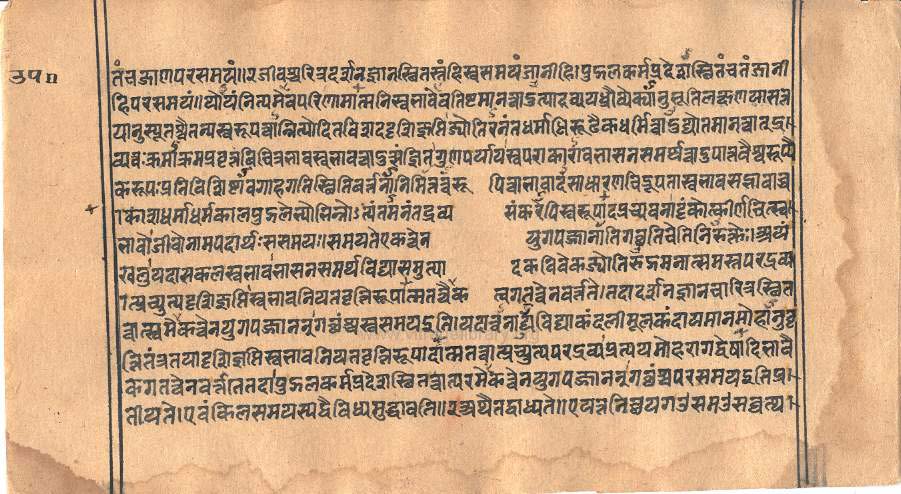 उपn
तं च जाण परसमयं॥२ जीवश्चरित्रदर्शनज्ञानस्थितस्तं हि स्वसमयं जानीहि। पुद्गलकर्मप्रदेशस्थितं च तं जानी
हि परसमयं। योयं नित्यमेव परिणामात्मनि स्वभावेवतिष्टमानत्वादुत्पादव्ययध्रौव्यैक्यानुभूतिलक्षणया सत्त
यानुस्यूतश्चैतन्यस्वरूपत्वान्नित्योदितविशददृशिज्ञप्तिज्योतिरनंतधर्माधिरूढैकधर्मित्वादुद्योतमानत्वात् द्र
व्यत्वः क्रमाक्रमप्रवृत्तविचित्रभावस्वभावत्वादुत्संगितगुणपर्यायः स्वपराकारावभासनसमर्थत्वादुपात्तवैश्वरूप्यै
करूपः प्रतिविशिष्टावगाहगतिस्थितिवर्तनानिमित्तत्वरू पित्वाभावादसाधारणचिद्रूपतास्वभावसद्भावाच्च
ाकाशधर्माधर्मकालपुद्गलेभ्यो भिन्नोऽत्यंतमनंतद्रव्य संकरेपि स्वरूपादप्रच्यवनाट्टंकोत्कीर्णचित्स्व
भावो जीवो नाम पदार्थः स समयः। समयत एकत्वेन युगपज्जानाति गच्छति चेति निरुक्तेः। अयं
खलु यदा सकलस्वभावभासनसमर्थविद्यासमुत्पा दकविवेकज्योतिरुद्गमनात्समस्तपरद्रव्य
ात्प्रच्युत्य दृशिज्ञप्तिस्वभावनियतवृत्तिरूपात्मतत्त्वैक त्वगतत्वेन वर्तते। तदा दर्शनज्ञानचारित्रस्थित
त्वात्स्वमेकत्वेन युगपज्जानन् गच्छंश्च स्वसमय इति। यदा त्वनाद्यविद्याकंदलीमूलकंदायमानमोहानुवृ
त्तितंत्रतया दृशिज्ञप्तिस्वभावनियतवृत्तिरूपादात्मतत्वात्प्रच्युत्य परद्रव्यप्रत्ययमोहरागद्वेषादिभावै
कगतत्वेन वर्तते तदा पुद्गलकर्मप्रदेशस्थितत्वात्परमेकत्वेन युगपज्जानन् गच्छंश्च परसमय इति प्र
तीयते। एवं किल समयस्य द्वैविध्यमुद्धावति॥२ अथैतद्बाध्यते॥ एयत्तनिच्छयगउ समउ सव्वत्थ